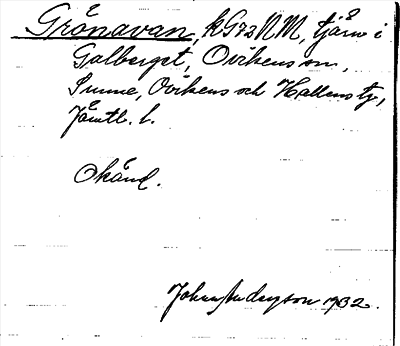 Grönavan, kG72NM, tjärn i
Galberget, Ovikens sn,
Sunne, Ovikens och Hallens tg,
Jämtl. l.
Okänd.
Johan Anderson 1932.